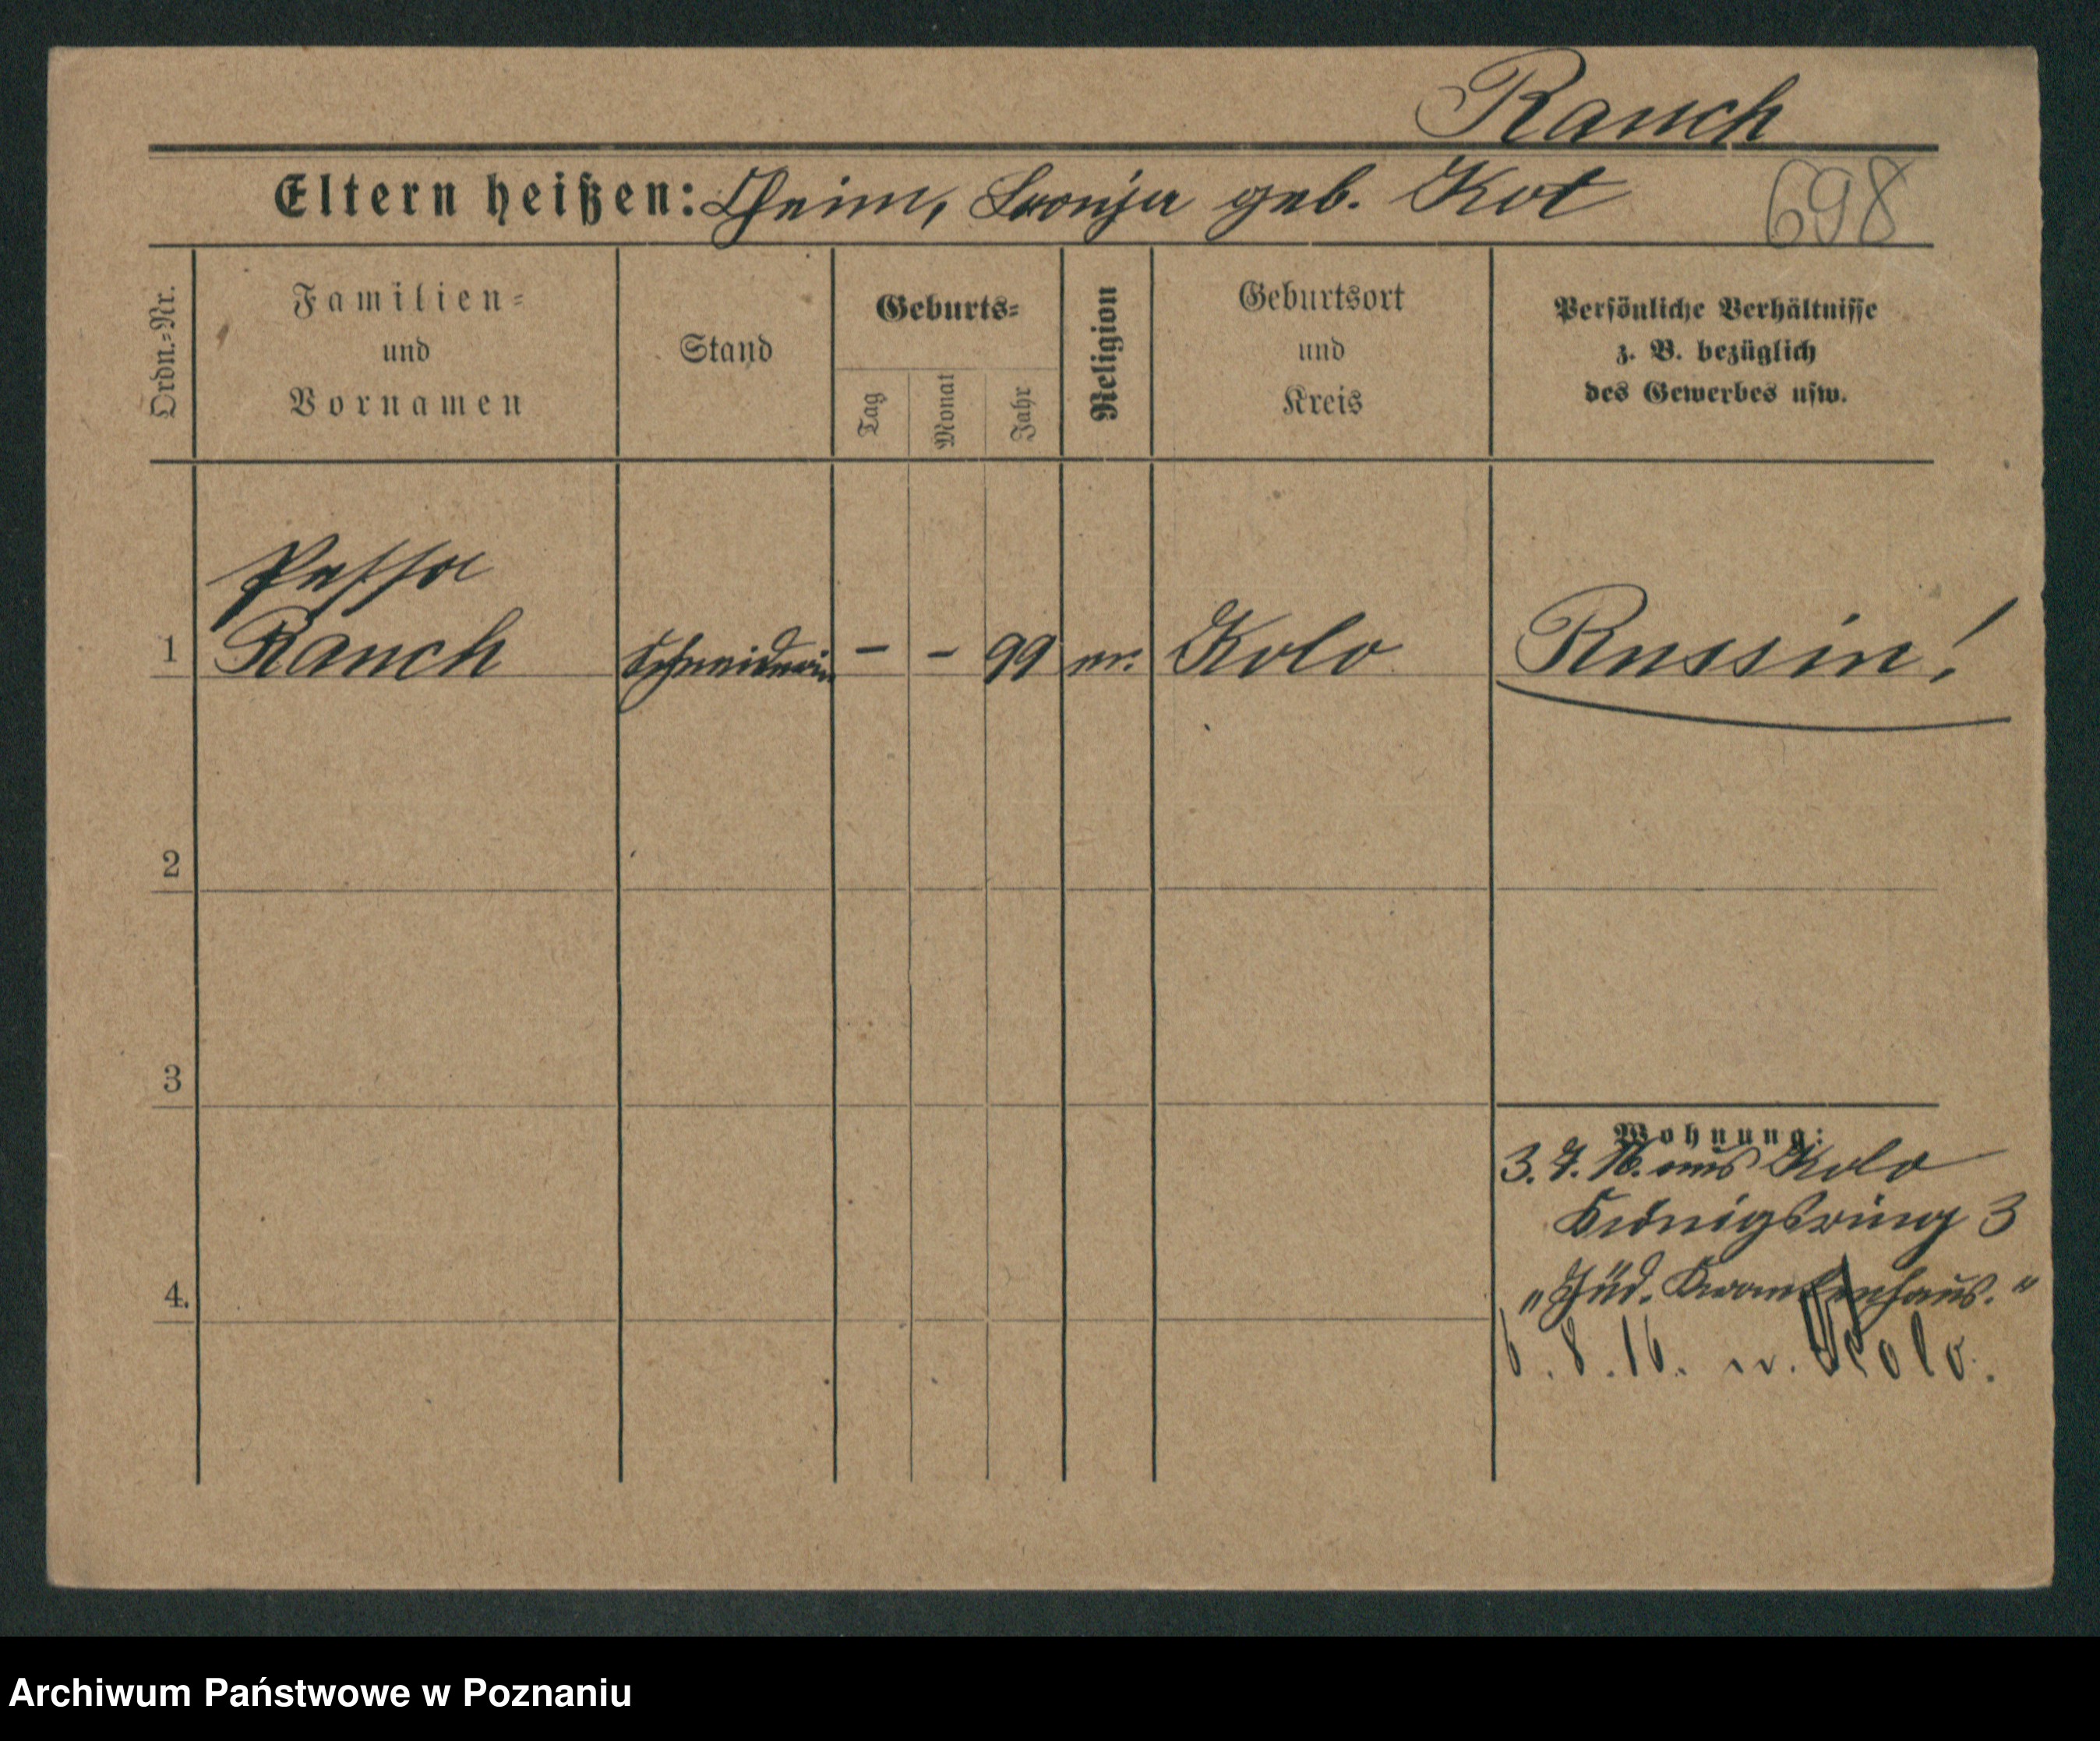 Rauch
Eltern heißen: Cheim, Sronja geb. Kot
698
Ordn.=Nr.
Familien=
und
Vornamen
Stand
Geburts=
Tag
Monat
Jahr
Religion
Geburtsort
und
Kreis
Persönliche Verhältnisse
z. B. bezüglich
des Gewerbes usw.
Pessa
1 Rauch Schneiderin - - 99 Kolo Russin!
2
3
4.
Wohnung:
3.7.16. aus Kolo
Königsring 3
"Jüd. Krankenhaus."
6.8.16. n. Kolo.
Archiwum Państwowe w Poznaniu